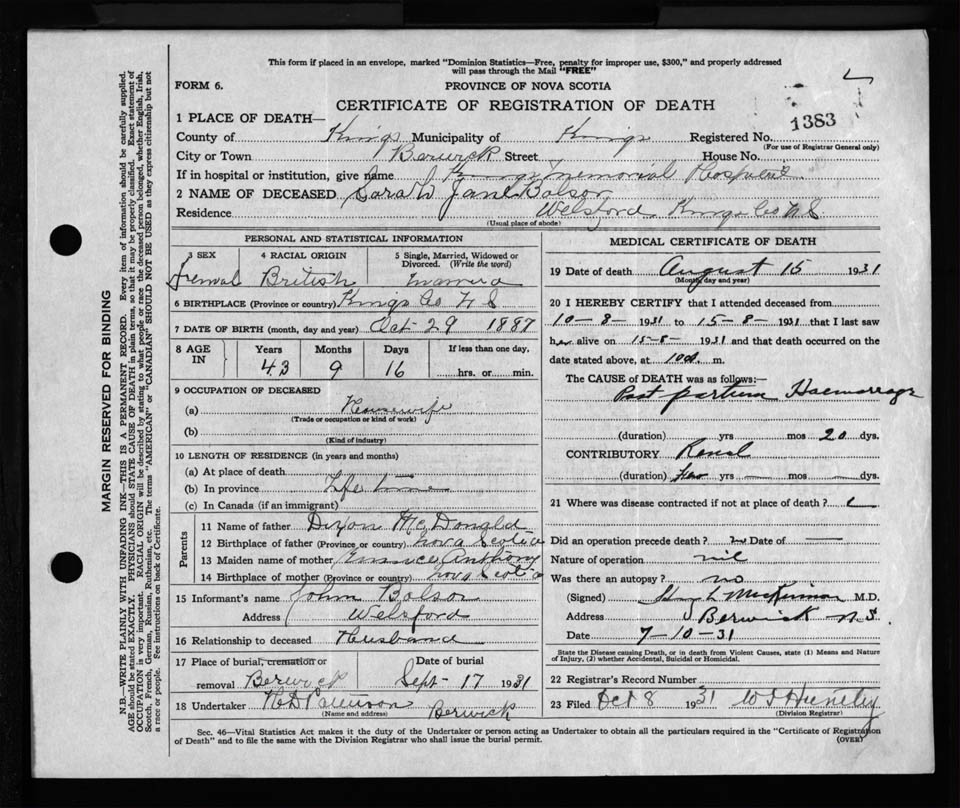 This form if placed in an envelope, marked "Dominion Statistics—Free, penalty for improper use, $300," and properly addressed
will pass through the Mail "FREE"
FORM 6.
PROVINCE OF NOVA SCOTIA
CERTIFICATE OF REGISTRATION OF DEATH
1383
1 PLACE OF DEATH—
County of Kings Municipality of Kings Registered No.
(For use of Registrar General only)
City or Town Berwick Street House No.
If in hospital or institution, give name Kings Memorial Hospital
2 NAME OF DECEASED Sarah Jane Bolsor
Residence Welsford Kings Co N S
(Usual place of abode)
PERSONAL AND STATISTICAL INFORMATION
3 SEX 4 RACIAL ORIGIN 5 Single, Married, Widowed or
Divorced. (Write the word)
Femal British
6 BIRTHPLACE (Province or country) Kings Co N S
7 DATE OF BIRTH (month, day and year) Oct 29 1887
8 AGE IN Years Months Days If less than one day.
43 9 16 hrs. or min.
9 OCCUPATION OF DECEASED
(a) Housewife
(Trade or occupation or kind of work)
(b)
(Kind of industry)
10 LENGTH OF RESIDENCE (in years and months)
(a) At place of death
(b) In province Life time
(c) In Canada (if an immigrant)
Parents
11 Name of father Dixon McDonald
12 Birthplace of father (Province or country) Nova Scotia
13 Maiden name of mother Anthony
14 Birthplace of mother (Province or country) Nova Scotia
15 Informant's name John Bolsor
Address Welsford
16 Relationship to deceased Husband
17 Place of burial, cremation or
removal Berwick
Date of burial
Sept 17 1931
18 Undertaker
(Name and address) Berwick
MEDICAL CERTIFICATE OF DEATH
19 Date of death August 15 1931
(Month, day and year)
20 I HEREBY CERTIFY that I attended deceased from
10-8- 1931 to 15-8- 1931 that I last saw
her alive on 15-8- 1931 and that death occurred on the
date stated above, at m.
The CAUSE of DEATH was as follows:—
Post partum Haemorrage
(duration) yrs mos 20 dys.
CONTRIBUTORY Renal
(duration) few yrs — mos — dys.
21 Where was disease contracted if not at place of death?
Did an operation precede death? Date of —
Nature of operation nil
Was there an autopsy? no
(Signed) M.D.
Address Berwick N.S.
Date 7-10-31
State the Disease causing Death, or in death from Violent Causes, state (1) Means and Nature
of Injury, (2) whether Accidental, Suicidal or Homicidal.
22 Registrar's Record Number
23 Filed Oct 8 1931
(Division Registrar)
Sec. 46—Vital Statistics Act makes it the duty of the Undertaker or person acting as Undertaker to obtain all the particulars required in the "Certificate of Registration
of Death" and to file the same with the Division Registrar who shall issue the burial permit.
(OVER)
MARGIN RESERVED FOR BINDING
N.B.—WRITE PLAINLY WITH UNFADING INK—THIS IS A PERMANENT RECORD. Every item of information should be carefully supplied.
AGE should be stated EXACTLY. PHYSICIANS should STATE CAUSE OF DEATH in plain terms, so that it may be properly classified. Exact statement of
OCCUPATION is very important. RACIAL ORIGIN will be described by stating to what people or race the deceased person belonged, whether English, Irish,
Scotch, French, German, Russian, Ruthenian, etc. The terms "AMERICAN" or "CANADIAN" SHOULD NOT BE USED as they express citizenship but not
a race or people. See instructions on back of Certificate.